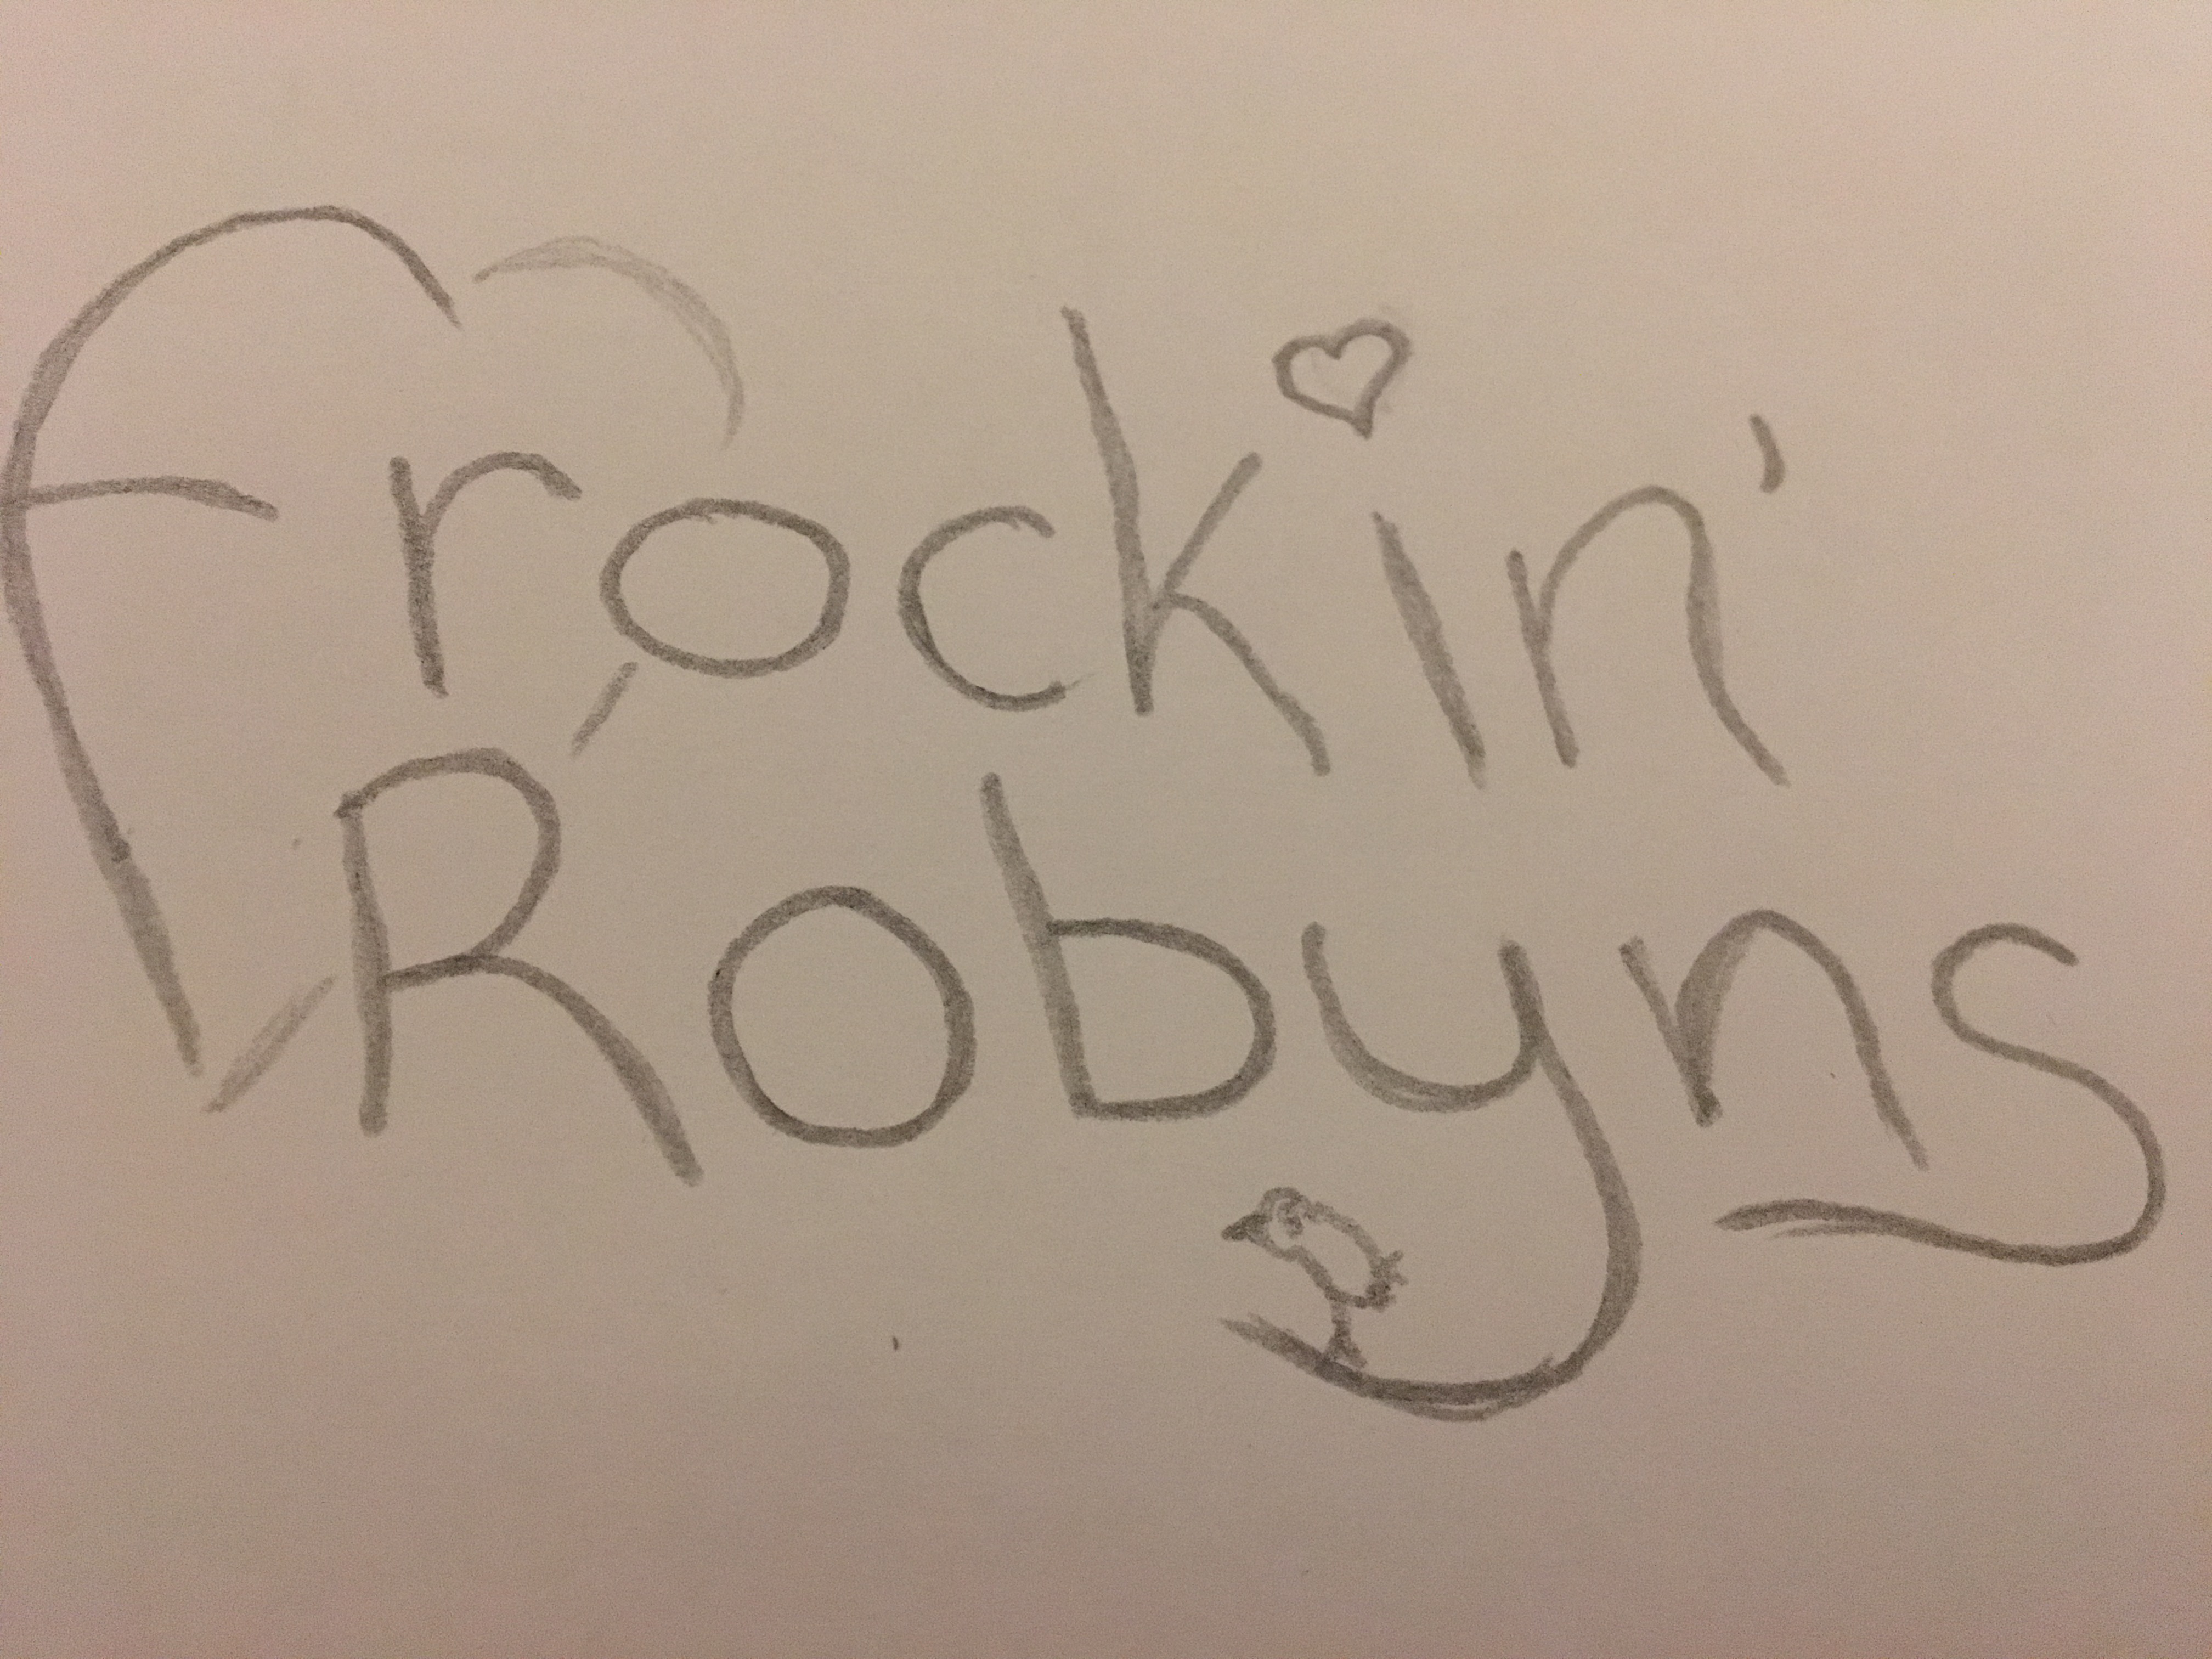 Frockin'
Robyns